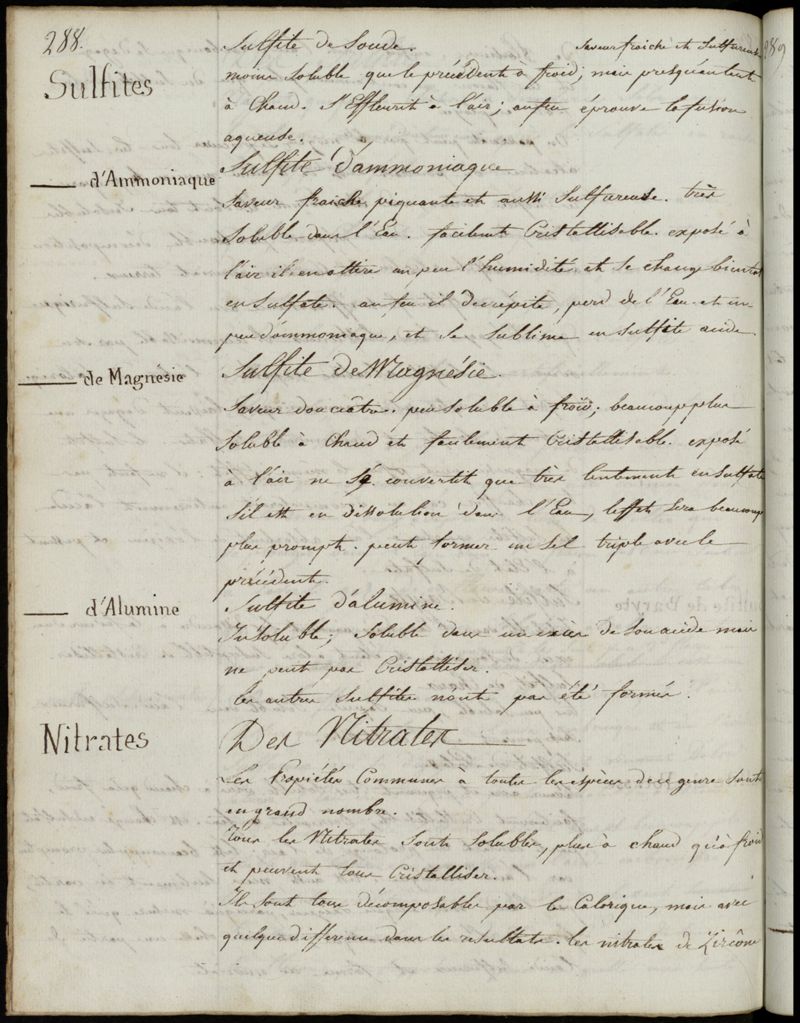 288.
Sulfites
Sulfite de Soude. Saveur fraiche et Sulfureuse
moins Soluble que le précédent à froid; mais presqu'autant
à Chaud. S'Effleurit à l'air; au feu éprouve la fusion
aqueuse.
— d'Ammoniaque
Sulfite d'ammoniaque
Saveur fraiche, piquante et aussi Sulfureuse. très
Soluble dans l'Eau. facilemt Cristallisable. exposé à
l'air il en attire un peu l'humidité et se change bientot
en Sulfate. au feu il decrépite, perd de l'Eau et un
peu d'ammoniaque, et se Sublime en Sulfite acide.
— de Magnésie
Sulfite de Magnésie.
Saveur douceâtre. peu Soluble à froid; beaucoup plus
Soluble à Chaud et facilement Cristallisable. exposé
à l'air ne se convertit que très lentement en Sulfate
S'il est en dissolution dans l'Eau, l'effet Sera beaucoup
plus prompt. peut former un Sel triple avec le
précédent.
— d'Alumine
Sulfite d'alumine.
Insoluble; Soluble dans un excès de Son acide mais
ne peut pas Cristalliser.
les autres Sulfites n'ont pas été formés.
Nitrates
Des Nitrates
Les Propriétés Communes à toutes les espèces de ce genre Sont
en grand nombre.
Tous les Nitrates Sont Solubles, plus à chaud qu'à froid
et peuvent tous Cristalliser.
Ils Sont tous décomposables par le Calorique, mais avec
quelque difference dans les resultats. les nitrates de Zircône
289